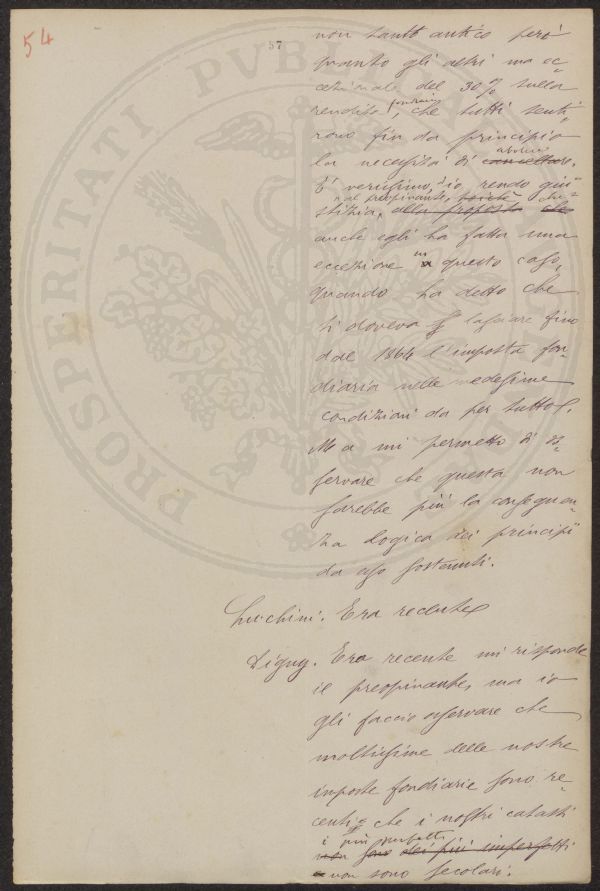 54
57
PROSPERITATI PUBLICAE
non tanto antico però
quanto gli altri ma ec-
cezionale del 30% sulla
rendita fondiaria, che tutti senti
rono fin da principio
la necessità di cancellare. abolire
È verissimo, io, rendo giu-
stizia, al preopinante, alla proposta che
anche egli ha fatta una
eccezione in questo caso,
quando ha detto che
si doveva lasciare fino
dal 1864 l'imposta fon-
diaria nelle medesime
condizioni da per tutto.
Ma mi permetto di os-
servare che questa non
sarebbe più la conseguen-
za logica dei principî
da esso sostenuti.
Luchini. Era recente
Digny. Era recente mi risponde
il preopinante, ma io
gli faccio osservare che
moltissime delle nostre
imposte fondiarie sono re-
centi e che i nostri catasti
i più perfetti
non sono dei più imperfetti
non sono secolari.